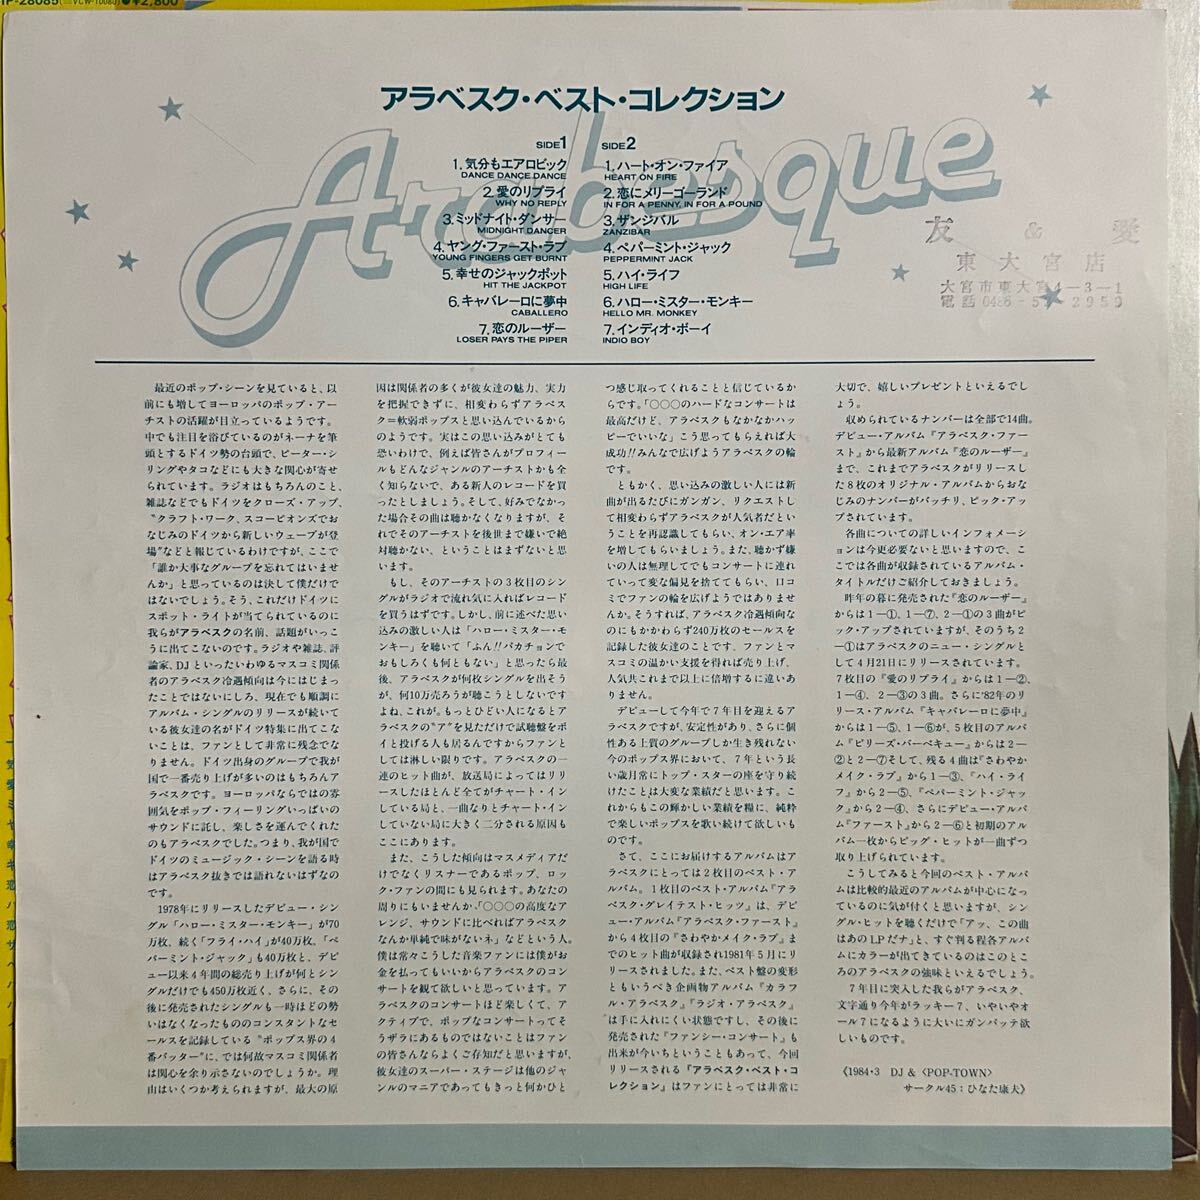 アラベスク・ベスト・コレクション
Arabesque
SIDE1
1. 気分もエアロビック
DANCE DANCE DANCE
2. 愛のリプライ
WHY NO REPLY
3. ミッドナイト・ダンサー
MIDNIGHT DANCER
4. ヤング・ファースト・ラブ
YOUNG FINGERS GET BURNT
5. 幸せのジャックポット
HIT THE JACKPOT
6. キャバレーロに夢中
CABALLERO
7. 恋のルーザー
LOSER PAYS THE PIPER
SIDE2
1. ハート・オン・ファイア
HEART ON FIRE
2. 恋にメリーゴーランド
IN FOR A PENNY, IN FOR A POUND
3. ザンジバル
ZANZIBAR
4. ペパーミント・ジャック
PEPPERMINT JACK
5. ハイ・ライフ
HIGH LIFE
6. ハロー・ミスター・モンキー
HELLO MR. MONKEY
7. インディオ・ボーイ
INDIO BOY
友 & 愛
東大宮店
大宮市東大宮4-3-1
最近のポップ・シーンを見ていると、以
前にも増してヨーロッパのポップ・アー
チストの活躍が目立っているようです。
中でも注目を浴びているのがネーナを筆
頭とするドイツ勢の台頭で、ピーター・シ
リングやタコなどにも大きな関心が寄せ
られています。ラジオはもちろんのこと、
雑誌などでもドイツをクローズ・アップ、
“クラフト・ワーク、スコーピオンズでお
なじみのドイツから新しいウェーブが登
場”などと報じているわけですが、ここで
「誰か大事なグループを忘れてはいませ
んか」と思っているのは決して僕だけで
はないでしょう。そう、これだけドイツに
スポット・ライトが当てられているのに
我らがアラベスクの名前、話題がいっこ
うに出てこないのです。ラジオや雑誌、評
論家、DJといったいわゆるマスコミ関係
者のアラベスク冷遇傾向は今にはじまっ
たことではないにしろ、現在でも順調に
アルバム・シングルのリリースが続いて
いる彼女達の名がドイツ特集に出てこな
いことは、ファンとして非常に残念でな
りません。ドイツ出身のグループで我が
国で一番売り上げが多いのはもちろんア
ラベスクです。ヨーロッパならではの雰
囲気をポップ・フィーリングいっぱいの
サウンドに託し、楽しさを運んでくれた
のもアラベスクでした。つまり、我が国で
ドイツのミュージック・シーンを語る時
はアラベスク抜きでは語れないはずなの
です。
1978年にリリースしたデビュー・シン
グル「ハロー・ミスター・モンキー」が70
万枚、続く「フライ・ハイ」が40万枚、「ペ
パーミント・ジャック」も40万枚と、デビ
ュー以来4年間の総売り上げが何とシン
グルだけでも450万枚近く、さらに、その
後に発売されたシングルも一時ほどの勢
いはなくなったもののコンスタントなセ
ールスを記録している“ポップス界の4
番バッター”に、では何故マスコミ関係者
は関心を余り示さないのでしょうか。理
由はいくつか考えられますが、最大の原
因は関係者の多くが彼女達の魅力、実力
を把握できずに、相変わらずアラベス
ク=軟弱ポップスと思い込んでいるから
のようです。実はこの思い込みがとても
恐いわけで、例えば皆さんがプロフィー
ルもどんなジャンルのアーチストかも全
く知らないで、ある新人のレコードを買
ったとしましょう。そして、好みでなかっ
た場合その曲は聴かなくなりますが、そ
れでそのアーチストを後世まで嫌いで絶
対聴かない、ということはまずないと思
います。
もし、そのアーチストの3枚目のシン
グルがラジオで流れ気に入ればレコード
を買うはずです。しかし、前に述べた思い
込みの激しい人は「ハロー・ミスター・モ
ンキー」を聴いて「ふん!!バカチョンで
おもしろくも何ともない」と思ったら最
後、アラベスクが何枚シングルを出そう
が、何10万売ろうが聴こうとしないです
よね、これが。もっとひどい人になるとア
ラベスクの“ア”を見ただけで試聴盤をポ
イと投げる人も居るんですからファンと
しては淋しい限りです。アラベスクの一
連のヒット曲が、放送局によってはリリ
ースしたほとんど全てがチャート・イン
している局と、一曲なりとチャート・イン
していない局に大きく二分される原因も
ここにあります。
また、こうした傾向はマスメディアだ
けでなくリスナーであるポップ、ロッ
ク・ファンの間にも見られます。あなたの
周りにもいませんか、「○○○の高度なア
レンジ、サウンドに比べればアラベスク
なんか単純で味がないネ」などという人。
僕は常々こうした音楽ファンには僕がお
金を払ってもいいからアラベスクのコン
サートを観て欲しいと思っています。ア
ラベスクのコンサートほど楽しくて、ア
クティブで、ポップなコンサートってそ
うザラにあるものではないことはファン
の皆さんならよくご存知だと思いますが、
彼女達のスーパー・ステージは他のジャ
ンルのマニアであってもきっと何かひと
つ感じ取ってくれることと信じているか
らです。「○○○のハードなコンサートは
最高だけど、アラベスクもなかなかハッ
ピーでいいな」こう思ってもらえれば大
成功!!みんなで広げようアラベスクの輪
です。
ともかく、思い込みの激しい人には新
曲が出るたびにガンガン、リクエストし
て相変わらずアラベスクが人気者だとい
うことを再認識してもらい、オン・エア率
を増してもらいましょう。また、聴かず嫌
いの人は無理してでもコンサートに連れ
ていって変な偏見を捨ててもらい、口コ
ミでファンの輪を広げようではありませ
んか。そうすれば、アラベスク冷遇傾向な
のにもかかわらず240万枚のセールスを
記録した彼女達のことです、ファンとマ
スコミの温かい支援を得れば売り上げ、
人気共これまで以上に倍増するに違いあ
りません。
デビューして今年で7年目を迎えるア
ラベスクですが、安定性があり、さらに個
性ある上質のグループしか生き残れない
今のポップス界において、7年という長
い歳月常にトップ・スターの座を守り続
けたことは大変な業績だと思います。こ
れからもこの輝かしい業績を糧に、純粋
で楽しいポップスを歌い続けて欲しいも
のです。
さて、ここにお届けするアルバムはア
ラベスクにとっては2枚目のベスト・ア
ルバム。1枚目のベスト・アルバム『アラ
ベスク・グレイテスト・ヒッツ』は、デビ
ュー・アルバム『アラベスク・ファースト』
から4枚目の『さわやかメイク・ラブ』ま
でのヒット曲が収録され1981年5月にリ
リースされました。また、ベスト盤の変形
ともいうべき企画物アルバム『カラフ
ル・アラベスク』『ラジオ・アラベスク』
は手に入れにくい状態ですし、その後に
発売された『ファンシー・コンサート』も
出来が今いちということもあって、今回
リリースされる『アラベスク・ベスト・コ
レクション』はファンにとっては非常に
大切で、嬉しいプレゼントといえるでし
ょう。
収められているナンバーは全部で14曲。
デビュー・アルバム『アラベスク・ファー
スト』から最新アルバム『恋のルーザー』
まで、これまでアラベスクがリリースし
た8枚のオリジナル・アルバムからおな
じみのナンバーがバッチリ、ピック・アッ
プされています。
各曲についての詳しいインフォメーシ
ョンは今更必要ないと思いますので、こ
こでは各曲が収録されているアルバム・
タイトルだけご紹介しておきましょう。
昨年の暮に発売された『恋のルーザー』
からは1-①、1-⑦、2-①の3曲がピ
ック・アップされていますが、そのうち2
-①はアラベスクのニュー・シングルと
して4月21日にリリースされています。
7枚目の『愛のリプライ』からは1-②、
1-④、2-③の3曲。さらに'82年のリ
リース・アルバム『キャバレーロに夢中』
からは1-⑤、1-⑥が、5枚目のアルバ
ム『ビリーズ・バーベキュー』からは2-
②と2-⑦そして、残る4曲は『さわやか
メイク・ラブ』から1-③、『ハイ・ライ
フ』から2-⑤、『ペパーミント・ジャッ
ク』から2-④、さらにデビュー・アルバ
ム『ファースト』から2-⑥と初期のアル
バム一枚からビッグ・ヒットが一曲ずつ
取り上げられています。
こうしてみると今回のベスト・アルバ
ムは比較的最近のアルバムが中心になっ
ているのに気が付くと思いますが、シン
グル・ヒットを聴くだけで「アッ、この曲
はあのLPだナ」と、すぐ判る程各アルバ
ムにカラーが出てきているのはこのとこ
ろのアラベスクの強味といえるでしょう。
7年目に突入した我らがアラベスク、
文字通り今年がラッキー7、いやいやオ
ール7になるように大いにガンバッテ欲
しいものです。
《1984・3 DJ & 〈POP-TOWN〉
サークル45：ひなた康夫》